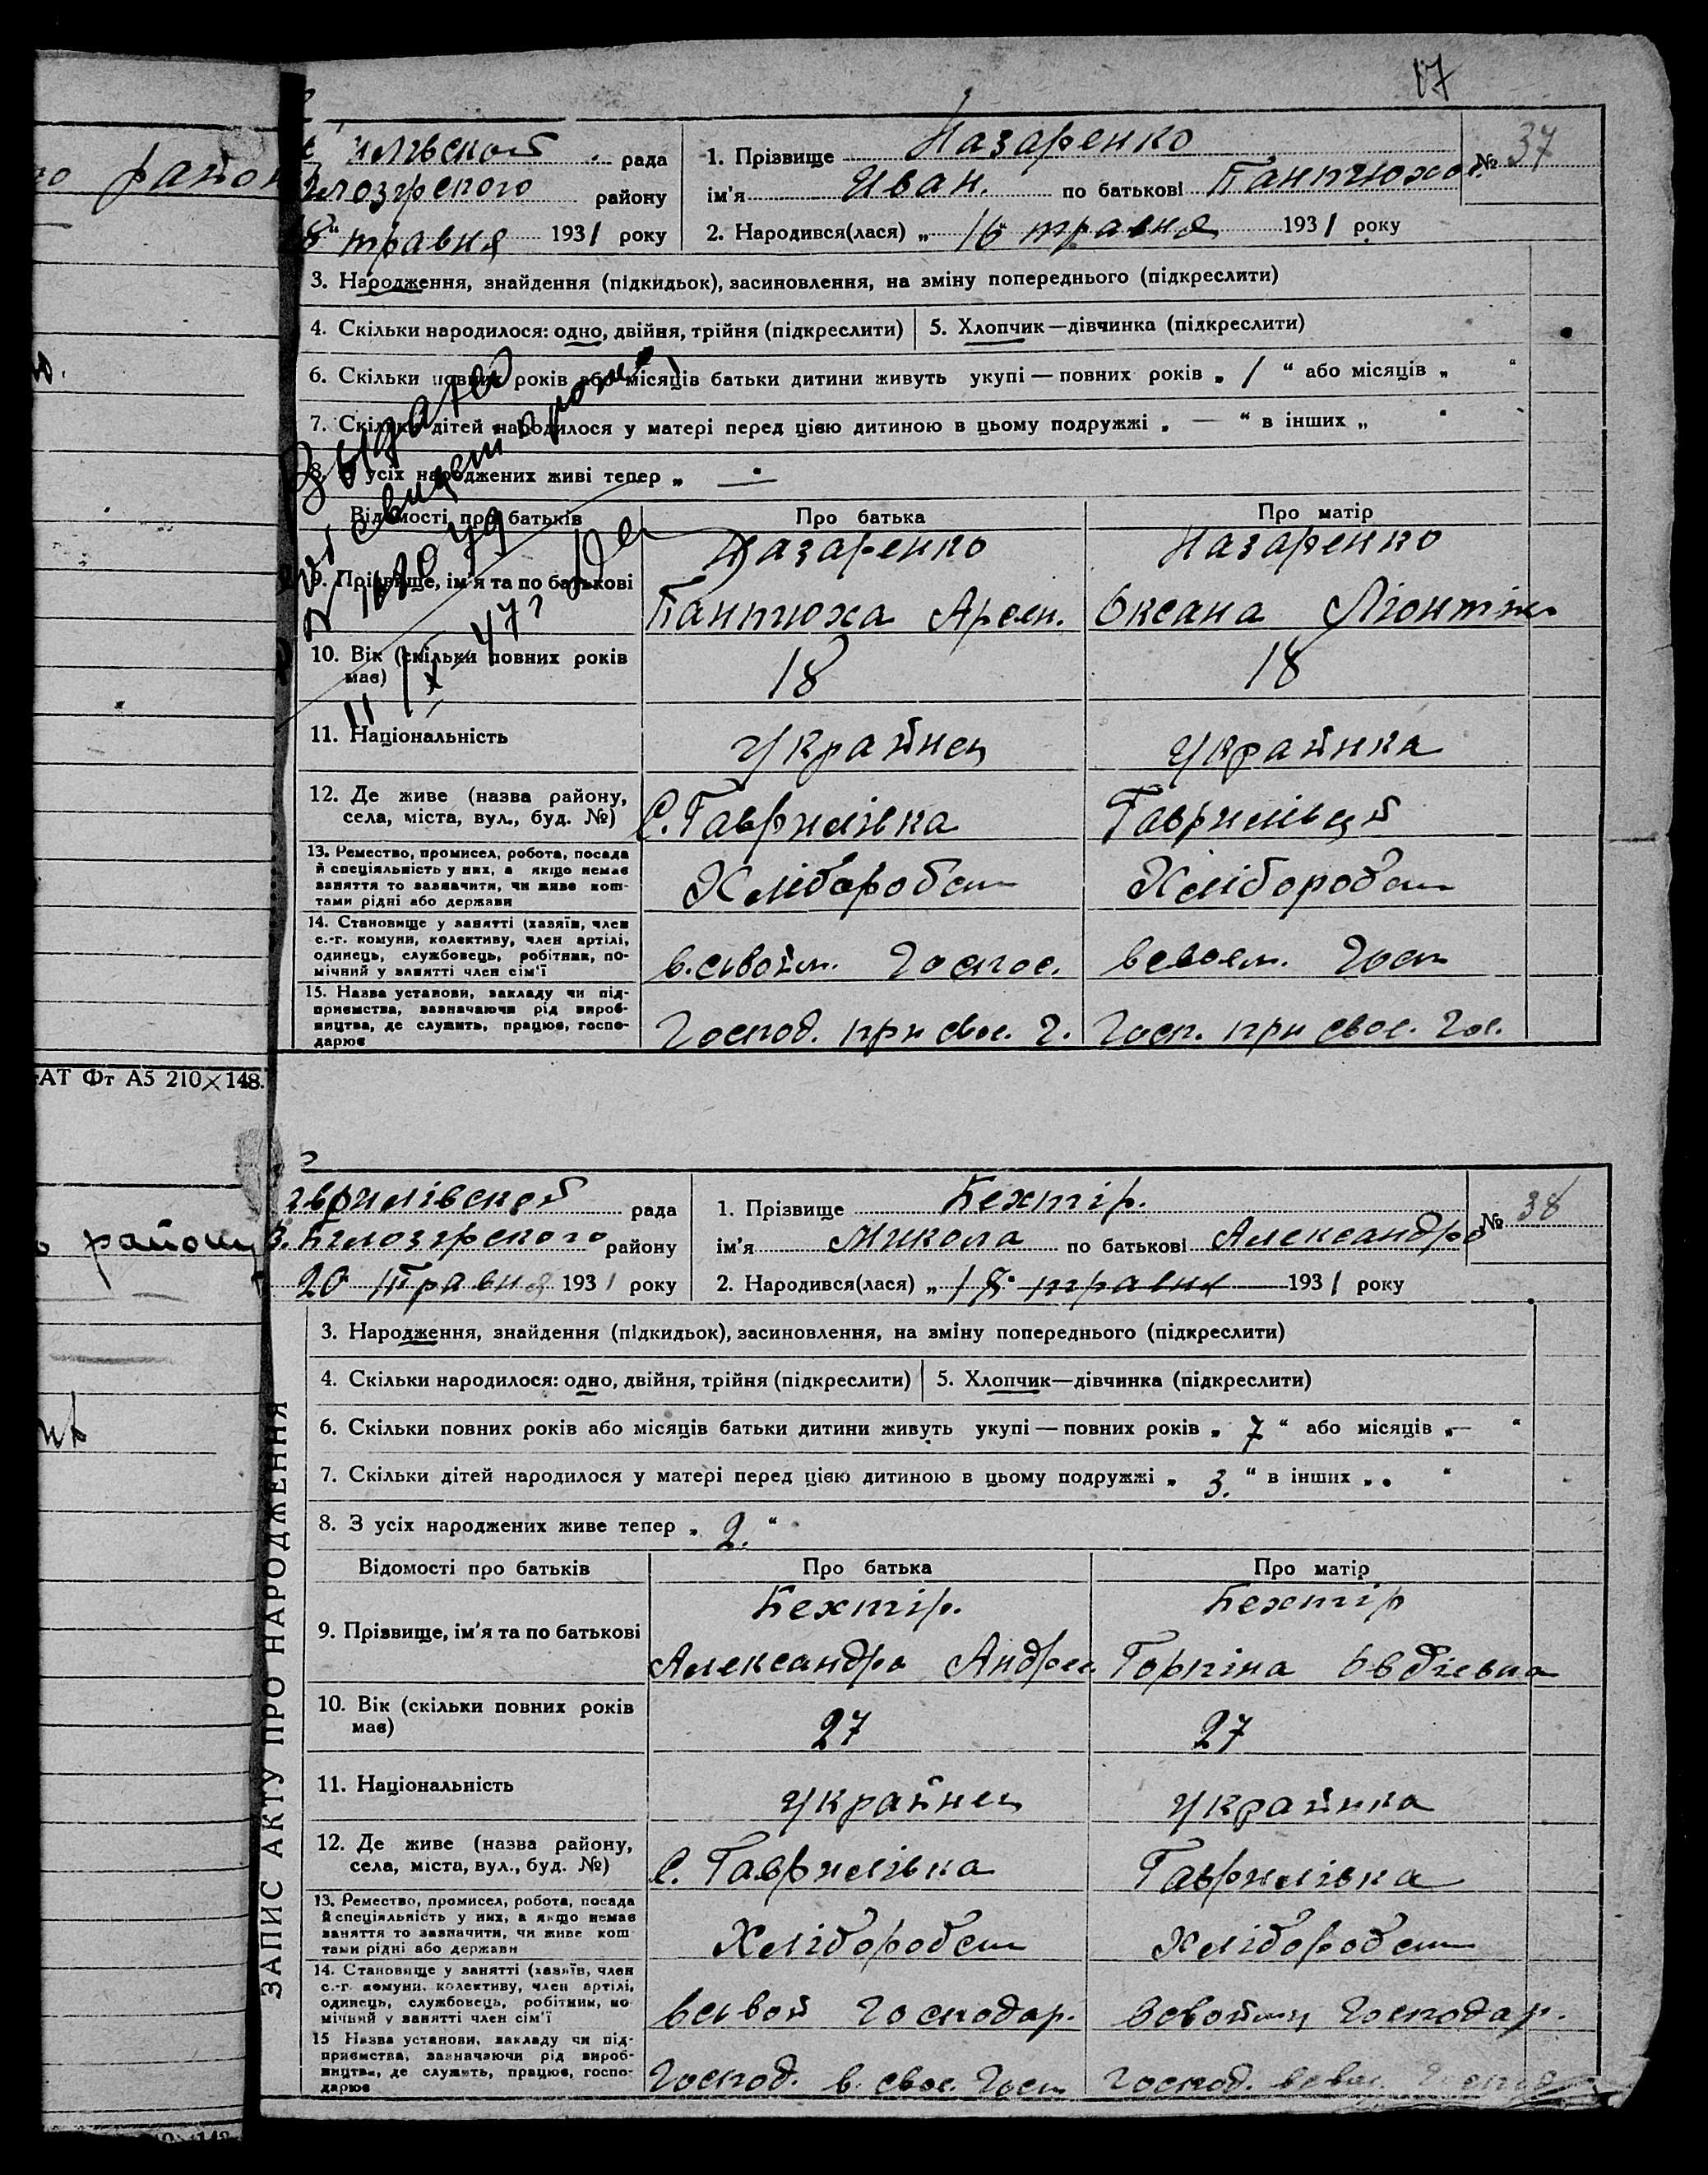 17
о район
илівской рада
Білозірского району
18 травня 1931 року
1. Прізвище Назаренко
ім'я Иван. по батькові Пантюхов.
№ 37
2. Народився(лася) „ 16 травня 1931 року
3. Народження, знайдення (підкидьок), засиновлення, на зміну попереднього (підкреслити)
4. Скільки народилося: одно, двійня, трійня (підкреслити) 5. Хлопчик—дівчинка (підкреслити)
6. Скільки повних років або місяців батьки дитини живуть укупі — повних років „ 1 “ або місяців „ “
7. Скільки дітей народилося у матері перед цією дитиною в цьому подружжі „ — “ в інших „ “
8. З усіх народжених живі тепер „ —
Выдано
свидет о рожд
N 1020
11/X 47г
Відомості про батьків Про батька Про матір
9. Прізвище, ім'я та по батькові
Назаренко Назаренко
Пантюха Арсен. Оксана Ліонтів
10. Вік (скільки повних років має) 18 18
11. Національність Украйнец Украйнка
12. Де живе (назва району,
села, міста, вул., буд. №) С. Гаврилівка Гаврилівцй
13. Ремество, промисел, робота, посада
й спеціяльність у них, а якщо немає
заняття то зазначити, чи живе кош-
тами рідні або держави
Хлібороб Хлібороб
14. Становище у занятті (хазяїн, член
с.-г. комуни, колективу, член артілі,
одинець, службовець, робітник, по-
мічний у занятті член сім'ї
в.свойм. Госпо. в своем. Госп
15. Назва установи, закладу чи під-
приємства, зазначаючи рід вироб-
ництва, де служить, працює, госпо-
дарює
Господ. при свое. г. Госп. при свое. Гос.
АТ Фт А5 210×148.
району
ЗАПИС АКТУ ПРО НАРОДЖЕННЯ
аврилівской рада
Білозірского району
20 Травня 1931 року
1. Прізвище Бехтір.
ім'я Микола по батькові Александро
№ 38
2. Народився(лася) „ 18 травня 1931 року
3. Народження, знайдення (підкидьок), засиновлення, на зміну попереднього (підкреслити)
4. Скільки народилося: одно, двійня, трійня (підкреслити) 5. Хлопчик—дівчинка (підкреслити)
6. Скільки повних років або місяців батьки дитини живуть укупі — повних років „ 7 “ або місяців „— “
7. Скільки дітей народилося у матері перед цією дитиною в цьому подружжі „ 3. “ в інших „ “
8. З усіх народжених живе тепер „ 2. “
Відомості про батьків Про батька Про матір
9. Прізвище, ім'я та по батькові
Бехтір. Бехтір
Александро Андрее Горпіна Овдіевна
10. Вік (скільки повних років має) 27 27
11. Національність Украйнец Украйнка
12. Де живе (назва району,
села, міста, вул., буд. №) С. Гаврилівка Гаврилівка
13. Ремество, промисел, робота, посада
й спеціяльність у них, а якщо немає
заняття то зазначити, чи живе кош
тами рідні або держави
Хлібороб Хлібороб
14. Становище у занятті (хазяїв, член
с.-г. комуни, колективу, член артілі,
одинець, службовець, робітник, по
мічний у занятті член сім'ї
в свой господар. в свойму господар.
15 Назва установи, закладу чи під-
приємства, зазначаючи рід вироб-
ництва, де служить, працює, госпо-
дарює
Господ. в свое. Госп Господ. в свое. Господ